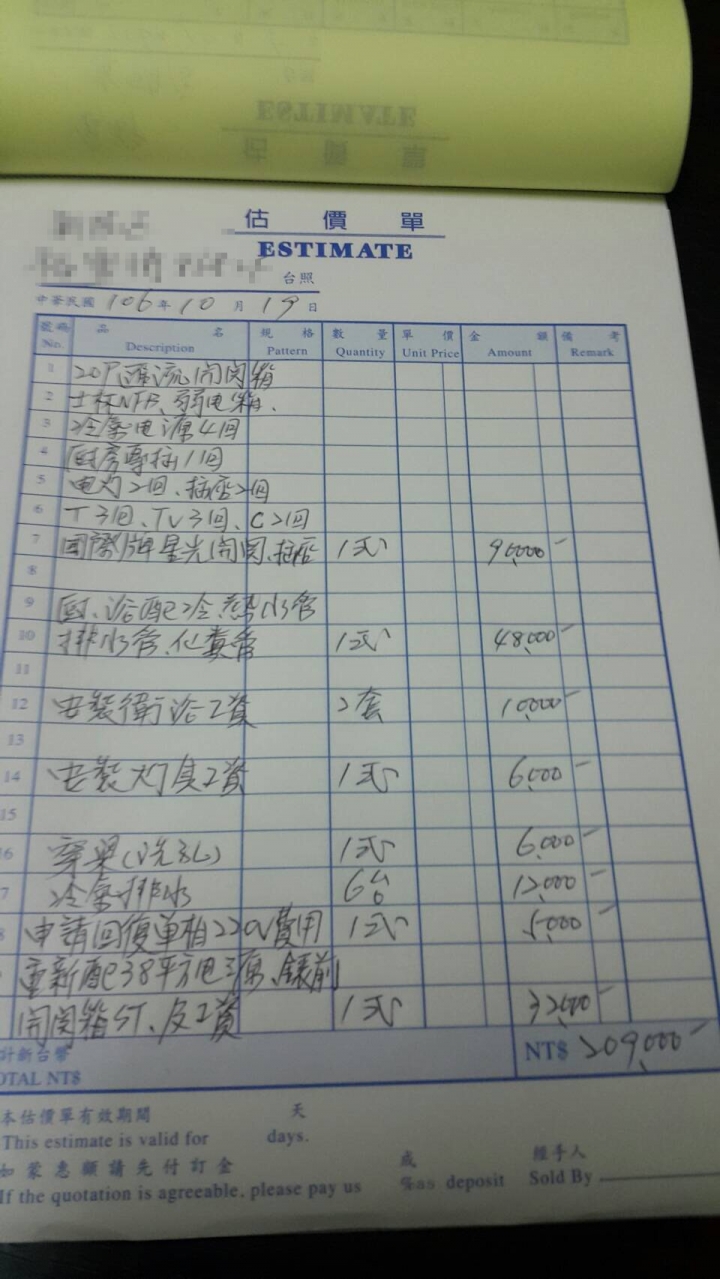 估價單
ESTIMATE
台照
中華民國 106年10月19日
號碼 No. 品名 Description 規格 Pattern 數量 Quantity 單價 Unit Price 金額 Amount 備考 Remark
1 20P匯流開関箱
2 士林NFB、弱电箱、
3 冷氣电源4回
4 厨房專插11回
5 电灯2回、插座2回
6 T3回、TV3回、C2回
7 國際牌星光開関、插座 1式 90,000-
8
9 厨、浴配冷、熱水管
10 排水管、化糞管 1式 48,000-
11
12 安裝衛浴工資 2套 10,000-
13
14 安裝灯具工資 1式 6,000-
15
6 穿梁(洗孔) 1式 6,000-
7 冷氣排水 6台 12,000-
8 申請回復单相220V費用 1式 5,000-
重新配38平方电源、錶前
開関箱ST、及工資 1式 32,000-
計新台幣
OTAL NT$ NT$ 209,000-
本估價單有效期間 天
This estimate is valid for days.
如蒙惠顧請先付訂金 成 經手人
If the quotation is agreeable, please pay us %as deposit Sold By